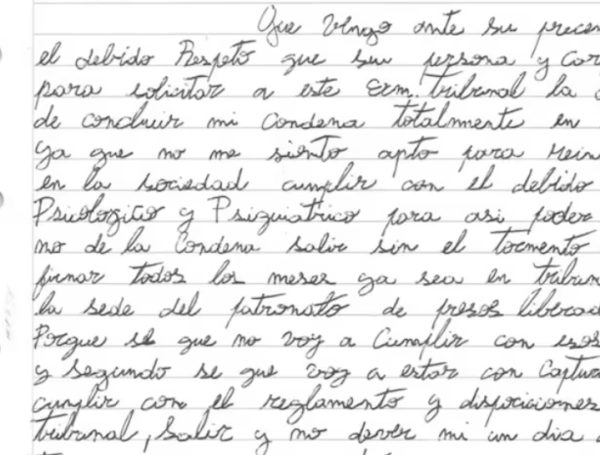 Que vengo ante su presen
el debido Respeto que su persona y car
para solicitar a este Exm. tribunal la
de concluir mi Condena totalmente en
ya que no me siento apto para rein
en la sociedad cumplir con el debido
Psicologico y Psiquiatrico para asi poder
no de la Condena salir sin el tormento
firmar todos los meses ya sea en tribun
la sede del patronato de presos liberad
Porque se que no voy a Cumplir con esos
y segundo se que voy a estar con Captur
cumplir con el reglamento y disposiciones
tribunal, Salir y no dever mi un dia